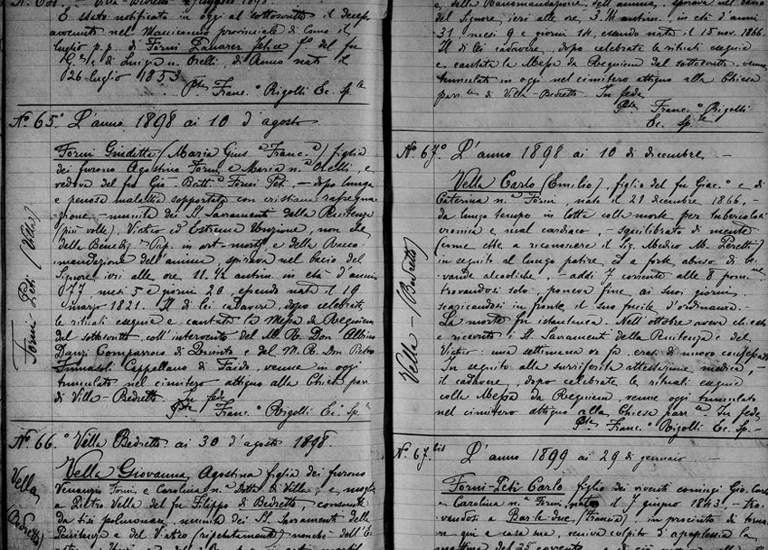 È stato notificato in oggi al sottoscritto il decesso
avvenuto nel Manicomio provinciale di Como il
luglio p. p. di Forni Zanarer Felice f.o del fu
di Luigia n. Orelli, di Ronco nato il
26 luglio 1853
Pte Franc.o Rigolli Ec. Sp.le
No 65o L'anno 1898 ai 10 d'agosto
Forni Giuditta (Maria Gius.a Franc.a) figlia
dei furono Agostino Forni e Maria n.a Orelli, e
vedova del fu Gio. Batt.a Forni Pet. – dopo lunga
e penosa malattia sopportata con cristiana rassegna
zione, – munita dei S.i Sacramenti della Penitenza
(più volte), Viatico ed Estrema Unzione, non che
della Bened. Pap. in art. mortis, e della Racco
mandazione dell'anima, spirava nel bacio del
Signore ieri alle ore 11.½ antim. in età d'anni
77 mesi 5 e giorni 20 essendo nata il 19
marzo 1821. Il di lei cadavere, dopo celebrate
le rituali esequie e cantata la Messa da Requiem
dal sottoscritto coll'intervento del M. R. Don Albino
e del M. R. Don Pietro
Cappellano di Faido, venne in oggi
tumulato nel cimitero attiguo alla Chiesa par.
di Villa-Bedretto. In fede
Pte Franc.o Rigolli Ec. Sp.le
Forni-Peti (Villa)
No 66.o Villa Bedretto ai 30 d'agosto 1898
Vella Giovanna Agostina figlia dei furono
Venanzio Forni e Carolina n.a Dotti di Villa, e moglie
a Pietro Vella del fu Filippo di Bedretto, consunta
da tisi polmonare, munita dei S.i Sacramenti della
Penitenza e del Viatico (ripetutamente) nonché dell'E
Vella
(Bedretto)
e della Raccomandazione dell'anima, spirava nel bacio
del Signore, ieri alle ore 3.¼ antim. in età d'anni
31 mesi 9 e giorni 14, essendo nata il 15 nov. 1866.
Il di lei cadavere, dopo celebrate le rituali esequie
e cantata la Messa da Requiem dal sottoscritto, venne
tumulato in oggi nel cimitero attiguo alla Chiesa
parr.le di Villa-Bedretto. In fede
Pte Franc.o Rigolli
Ec. Sp.le
No 67.o L'anno 1898 ai 10 di dicembre –
Vella Carlo (Emilio), figlio del fu Giac.o e di
Caterina n.a Forni, nato il 21 dicembre 1866, –
da lungo tempo in lotta colla morte per tubercolosi
cronica e mal cardiaco, – squilibrato di mente
(come ebbe a riconoscere il Sig. Medico M. Peretti)
in seguito al lungo patire, ed a forte abuso di be
vande alcooliche, – addì 7 corrente alle 8 pom.
trovandosi solo, poneva fine ai suoi giorni
scaricandosi in fronte il suo fucile d'ordinanza.
La morte fu istantanea. Nell'ottobre aveva chiesto
e ricevuto i S.i Sacramenti della Penitenza e del
Viatico: una settimana or fa, erasi di nuovo confessato
In seguito alla surriferita attestazione medica, –
il cadavere, dopo celebrate le rituali esequie
colla Messa da Requiem, venne oggi tumulato
nel cimitero attiguo alla Chiesa parr.le In fede
Pte Franc.o Rigolli Ec. Sp.
Vella – (Bedretto)
No 67.bis L'anno 1899 ai 29 di gennaio –
Forni-Peti Carlo figlio dei viventi coniugi Gio. Carlo
e Carolina n.a Forni, nato il 7 giugno 1843, tro
vandosi a Bar le duc, (Francia), in procinto di torna
re qui a casa sua, veniva colpito d'apoplessia la